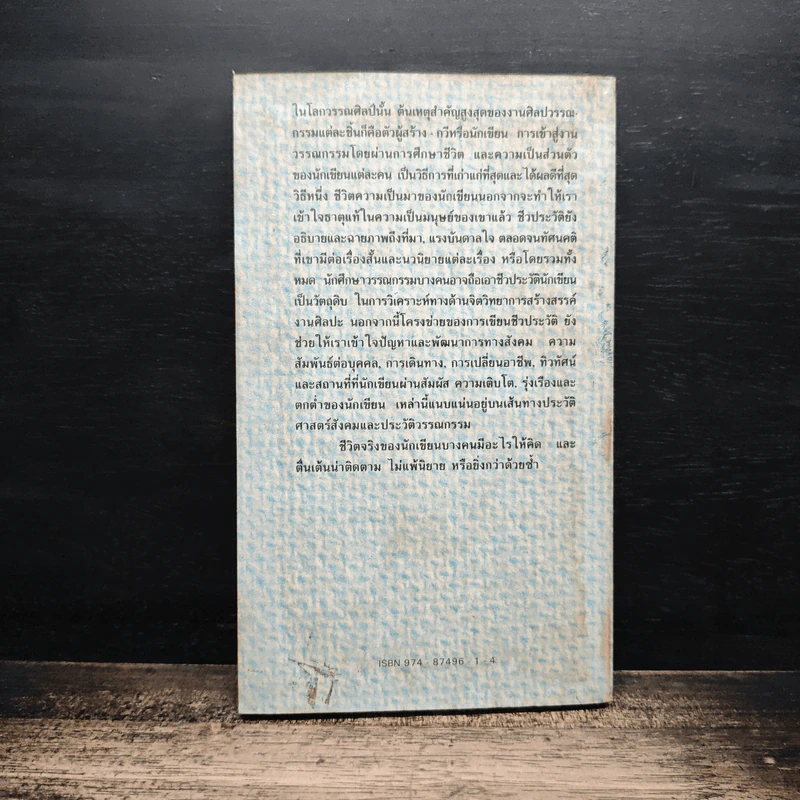 ในโลกวรรณศิลป์นั้น ต้นเหตุสำคัญสูงสุดของงานศิลปวรรณ-
กรรมแต่ละชิ้นก็คือตัวผู้สร้าง - กวีหรือนักเขียน การเข้าสู่งาน
วรรณกรรมโดยผ่านการศึกษาชีวิต และความเป็นส่วนตัว
ของนักเขียนแต่ละคน เป็นวิธีการที่เก่าแก่ที่สุดและได้ผลดีที่สุด
วิธีหนึ่ง ชีวิตความเป็นมาของนักเขียนนอกจากจะทำให้เรา
เข้าใจธาตุแท้ในความเป็นมนุษย์ของเขาแล้ว ชีวประวัติยัง
อธิบายและฉายภาพถึงที่มา, แรงบันดาลใจ ตลอดจนทัศนคติ
ที่เขามีต่อเรื่องสั้นและนวนิยายแต่ละเรื่อง หรือโดยรวมทั้ง
หมด นักศึกษาวรรณกรรมบางคนอาจถือเอาชีวประวัตินักเขียน
เป็นวัตถุดิบ ในการวิเคราะห์ทางด้านจิตวิทยาการสร้างสรรค์
งานศิลปะ นอกจากนี้โครงข่ายของการเขียนชีวประวัติ ยัง
ช่วยให้เราเข้าใจปัญหาและพัฒนาการทางสังคม ความ
สัมพันธ์ต่อบุคคล, การเดินทาง, การเปลี่ยนอาชีพ, ทิวทัศน์
และสถานที่ที่นักเขียนผ่านสัมผัส ความเติบโต, รุ่งเรืองและ
ตกต่ำของนักเขียน เหล่านี้แนบแน่นอยู่บนเส้นทางประวัติ
ศาสตร์สังคมและประวัติวรรณกรรม
ชีวิตจริงของนักเขียนบางคนมีอะไรให้คิด และ
ตื่นเต้นน่าติดตาม ไม่แพ้นิยาย หรือยิ่งกว่าด้วยซ้ำ
ISBN 974 - 87496 - 1 - 4